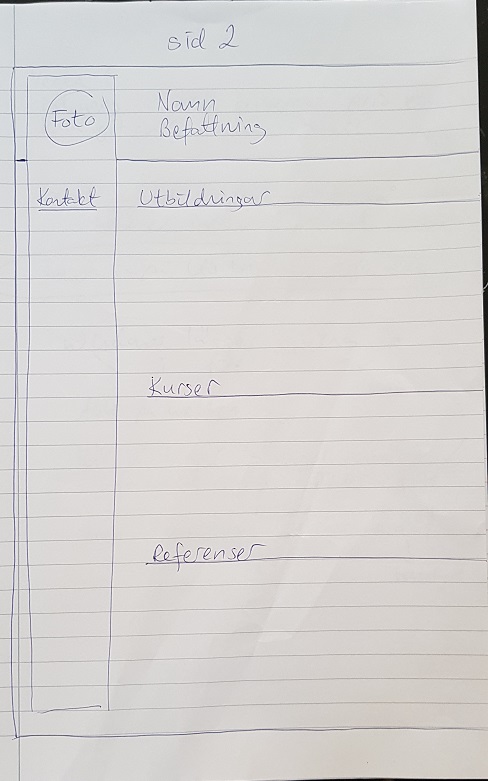 sid 2
Foto
Namn
Befattning
Kontakt
Utbildningar
Kurser
Referenser